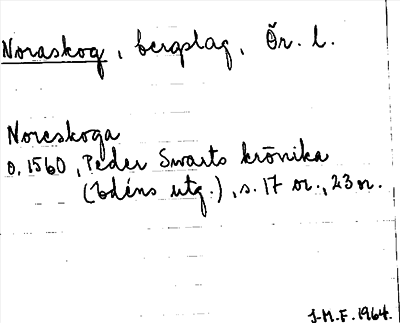 Noraskog, bergslag, Ör. l.
Noreskoga
o. 1560, Peder Swarts krönika
(Edéns utg.), s. 17 or., 23 n.
J.M.F. 1964.